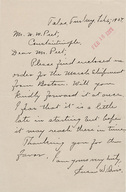 Tulsa Tues Feby Feb 2, 1925
Mr. W. W. Peet,
Constantinople,
Dear Mr. Peet,
Please find enclosed an
order for the March Shipment
from Boston. Will you
kindly forward it at once.
I fear that it is a little
late in starting but hope
it may reach there in time.
Thanking you for this
favor,
I am yours very truly,